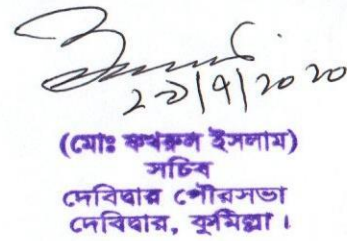 ২৯/৭/২০২০
(মোঃ ফখরুল ইসলাম)
সচিব
দেবিদ্বার পৌরসভা
দেবিদ্বার, কুমিল্লা।